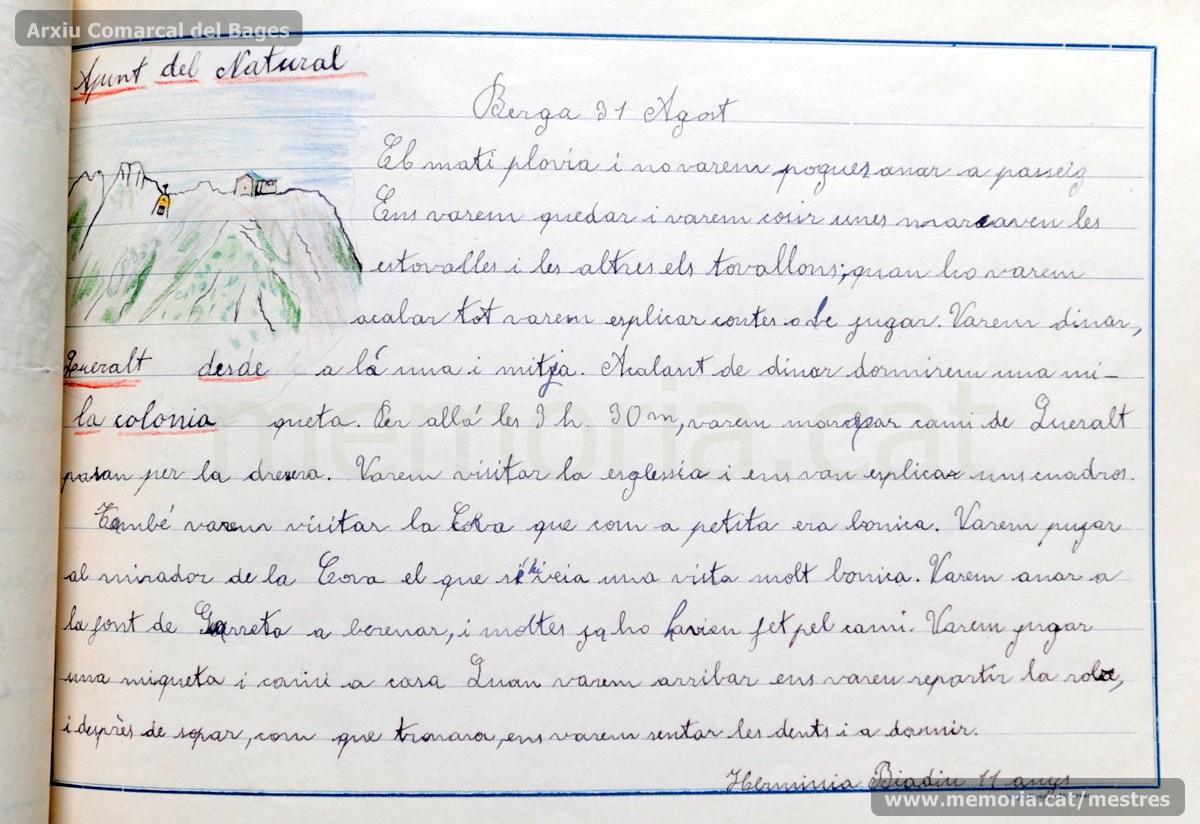 Arxiu Comarcal del Bages
Apunt del Natural
Berga 31 Agost
El mati plovia i no varem pogues anar a passeig
Ens varem quedar i varem cosir unes marcaven les
estovalles i les altres els tovallons; quan ho varem
acabar tot varem esplicar contes o be jugar. Varem dinar,
Queralt desde
a lá una i mitja. Acabant de dinar dormirem una mi-
la colonia
queta. Per allá les 3 h. 30 m, varem marxar cami de Queralt
pasan per la dresera. Varem visitar la esglessia i ens van esplicar uns cuadros.
També varem visitar la Cova que com a petita era bonica. Varem pujar
al mirador de la Cova el que s'hi veia una vista molt bonica. Varem anar a
la font de Garreta a berenar, i moltes ja ho havien fet pel cami. Varem jugar
una miqueta i cami a casa Quan varem arribar ens varen repartir la roba,
i desprès de sopar, com que tronava, ens varem rentar les dents i a dormir.
Herminia Biadiu 11 anys
memoria.cat
www.memoria.cat/mestres